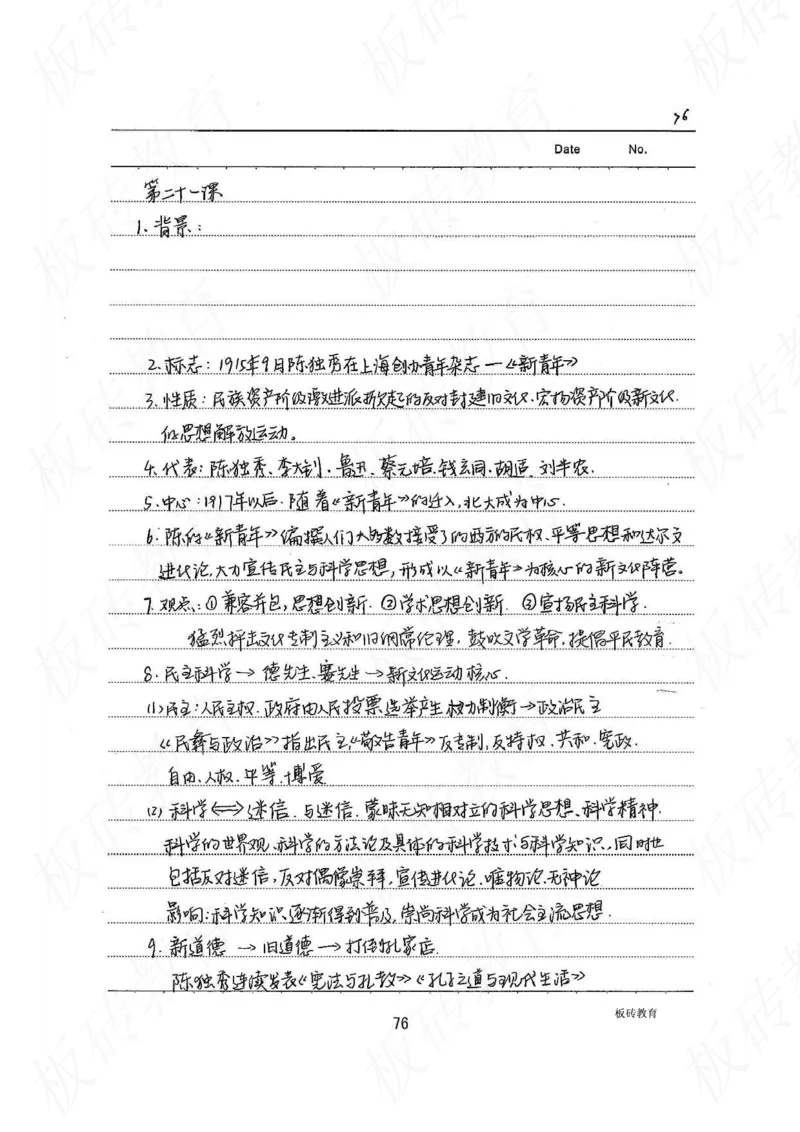 76
Date No.
第二十一课
1.背景：
2.标志：1915年9月陈独秀在上海创办青年杂志—《新青年》
3.性质：民族资产阶级激进派掀起的反对封建旧文化.宏扬资产阶级新文化.
的思想解放运动。
4.代表：陈独秀、李大钊.鲁迅.蔡元培.钱玄同.胡适.刘半农.
5.中心：1917年以后.随着《新青年》的迁入,北大成为中心.
6.陈的《新青年》编撰人们大多数接受了的西方的民权、平等思想和达尔文
进化论,大力宣传民主与科学思想,形成以《新青年》为核心的新文化阵营。
7.观点：①兼容并包,思想创新.②学术思想创新.③宣扬民主科学.
猛烈抨击文化专制主义和旧纲常伦理,鼓吹文学革命,提倡平民教育.
8.民主科学→德先生、赛先生→新文化运动核心.
(1)民主：人民主权.政府由人民投票选举产生.权力制衡→政治民主
《民彝与政治》指出民主,《敬告青年》反专制,反特权.共和.宪政.
自由.人权.平等.博爱
(2)科学⟺迷信.与迷信.蒙昧无知相对立的科学思想、科学精神.
科学的世界观、科学的方法论及具体的科学技术与科学知识,同时也
包括反对迷信,反对偶像崇拜,宣传进化论.唯物论.无神论
影响：科学知识逐渐得到普及,崇尚科学成为社会主流思想.
9.新道德→旧道德→打倒孔家店.
陈独秀连续发表《宪法与孔教》《孔子之道与现代生活》
76
板砖教育